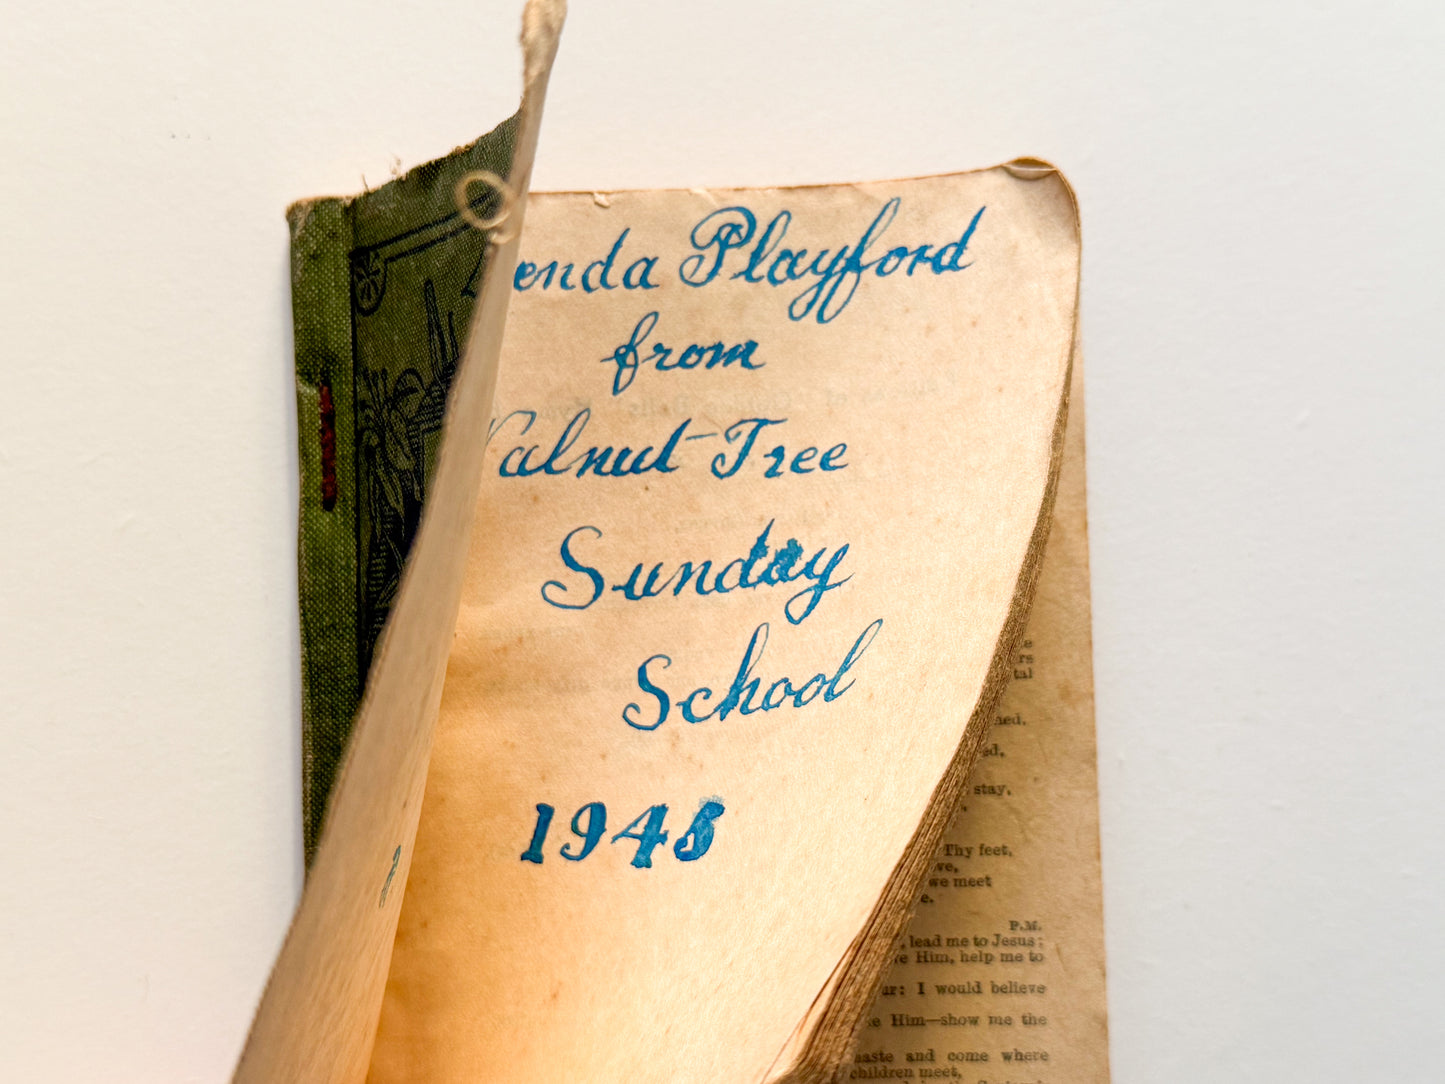 enda Playford
from
alnut-Tree
Sunday
School
1945
rs
tal
ned.
ed.
stay,
Thy feet,
ve,
we meet
e.
P.M.
, lead me to Jesus;
e Him, help me to
ur: I would believe
e Him—show me the
haste and come where
children meet,